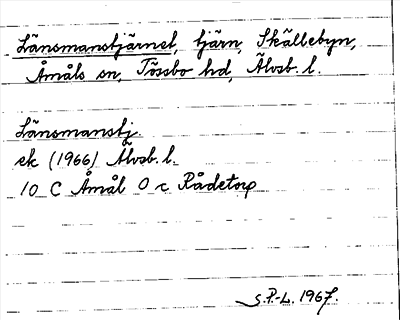 Länsmanstjärnet, tjärn, Skällebyn,
Åmåls sn, Tössbo hd, Älvsb. l.
Länsmanstj.
ek (1966) Älvsb. l.
10 C Åmål 0 c Rådetorp
S.P-L. 1967.